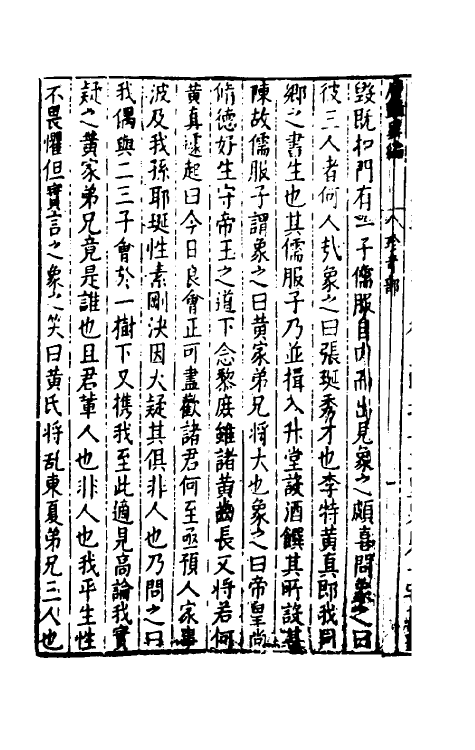 毀既扣門有一子儒服自內而出見象之頗喜問象之曰
彼三人者何人𢦤象之曰張珽秀才也李特黃真即我同
鄉之書生也其儒服子乃並揖入升堂設酒饌其所設甚
陳故儒服子謂象之曰黃家弟兄將大也象之曰帝皇尚
脩德好生守帝王之道下念黎庶雖諸黃齒長又將若何
黃真遽起曰今日良會正可盡歡諸君何至亟預人家事
波及我孫耶珽性素剛決因大疑其俱非人也乃問之曰
我偶與二三子會於一樹下又携我至此適見高論我實
疑之黃家弟兄竟是誰也且君輩人也非人也我平生性
不畏懼但實言之象之笑曰黃氏將乱東夏弟兄三人也